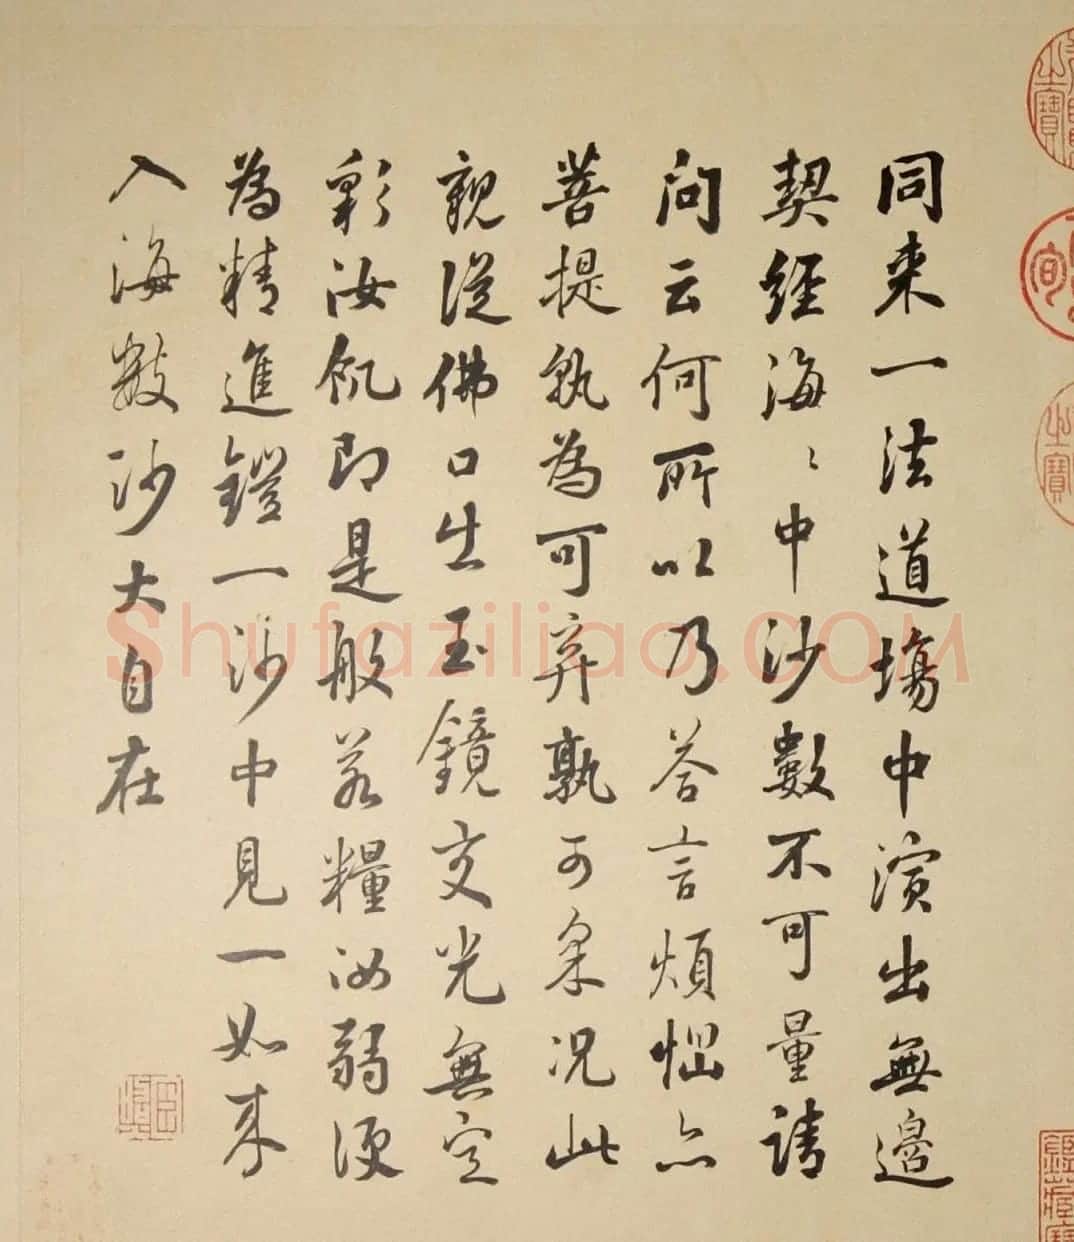 同来一法道場中演出無邊
契經海〻中沙數不可量請
問云何所以乃答言煩惱亦
菩提孰為可弃孰可采况此
親從佛口生玉鏡交光無定
彩汝飢即是般若糧汝弱便
為精進鎧一沙中見一如来
入海數沙大自在
Shufaziliao.COM
之寶
之寶